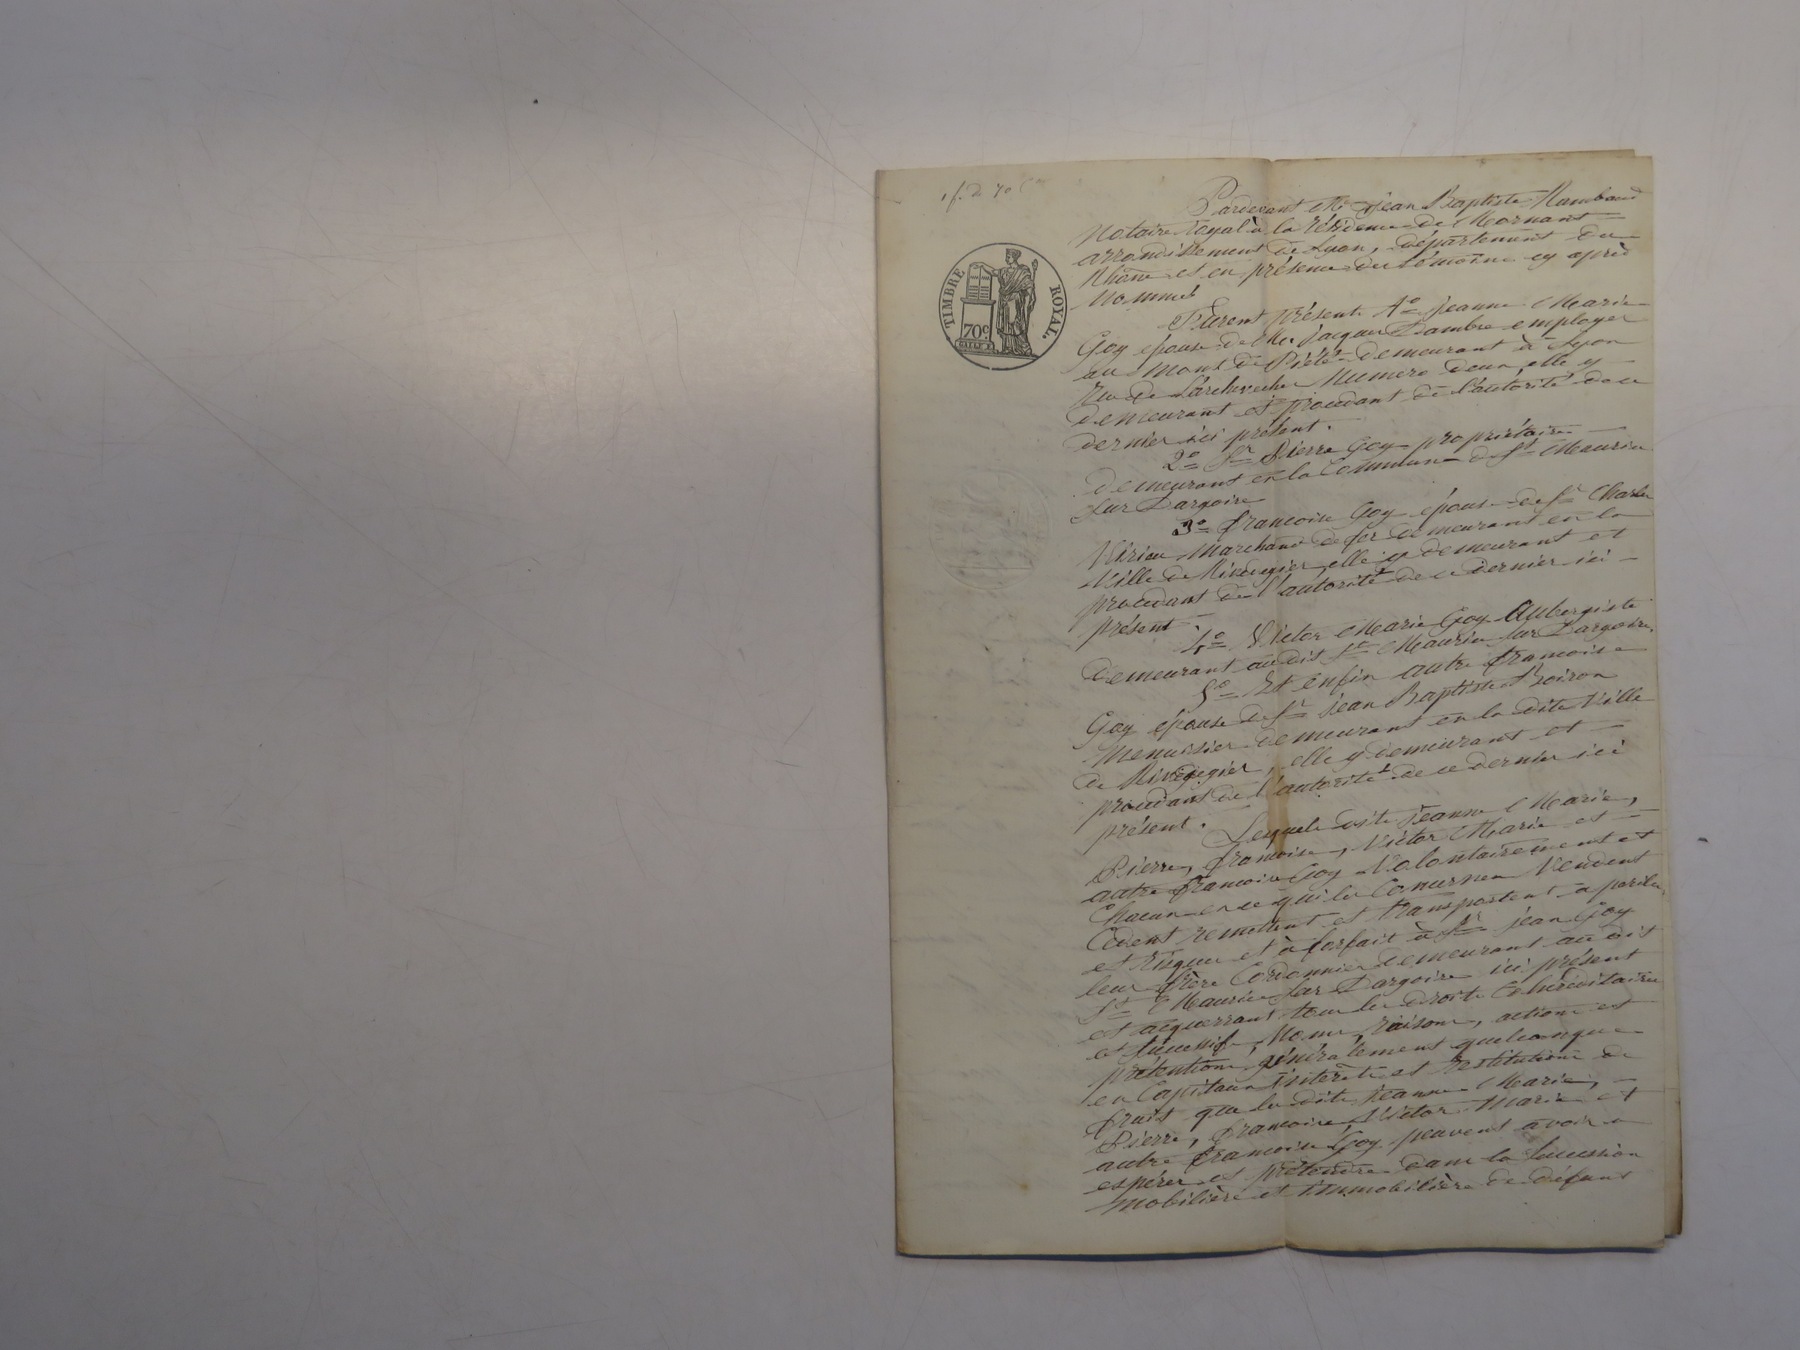 1 f. de 70 c
TIMBRE ROYAL.
70c
Pardevant Me Jean Baptiste Rambaud
Notaire royal à la résidence de Mornant
arrondissement de Lyon, département du
Rhône et en présence des témoins cy après
Nommés
Furent présents 1o Jeanne Marie
Goy épouse de Mr Jacques Dambre employer
au Mont de Piété demeurant à Lyon
Rue de Larchevecher Numero deux, elle y
demeurant et procedant de l'autorité de ce
dernier ici présent.
2o Sr Pierre Goy propriétaire
demeurant en la Commune de St Maurice
sur Dargoire
3o françoise Goy épouse de Sr Charles
Virieu Marchand de fer demeurant en la
Ville de Rivedegier, elle y demeurant et
procedant de l'autorité de ce dernier ici
présent.
4o Victor Marie Goy Aubergiste
demeurant audit St Maurice sur Dargoire.
5o Et enfin autre françoise
Goy épouse de Sr jean Baptiste Boiron
Menuisier demeurant en la dite Ville
de Rivedegier, elle y demeurant et
procedant de l'autorité de ce dernier ici
présent.
Lesquels dits Jeanne Marie,
Pierre, françoise, Victor Marie et
autre françoise Goy Volontairement et
Chacun en ce qui les Concernen Vendent
Cèdent remettent et transportent a perils
et risques et à forfait à Sr jean Goy
leur frère Cordonnier demeurant au dit
St Maurice sur Dargoire ici présent
et acquerrant tous les droits Cohéréditaires
et sucessifs, Noms, raisons, actions et
prétentions généralement quelconques
en Capitaux Intérêts et restitutions de
fruits que les dits Jeanne Marie,
Pierre, françoise, Victor Marie et
autre françoise Goy peuvent avoir
espérer et prétendre dans la sucession
mobilière et Immobilière de défunt